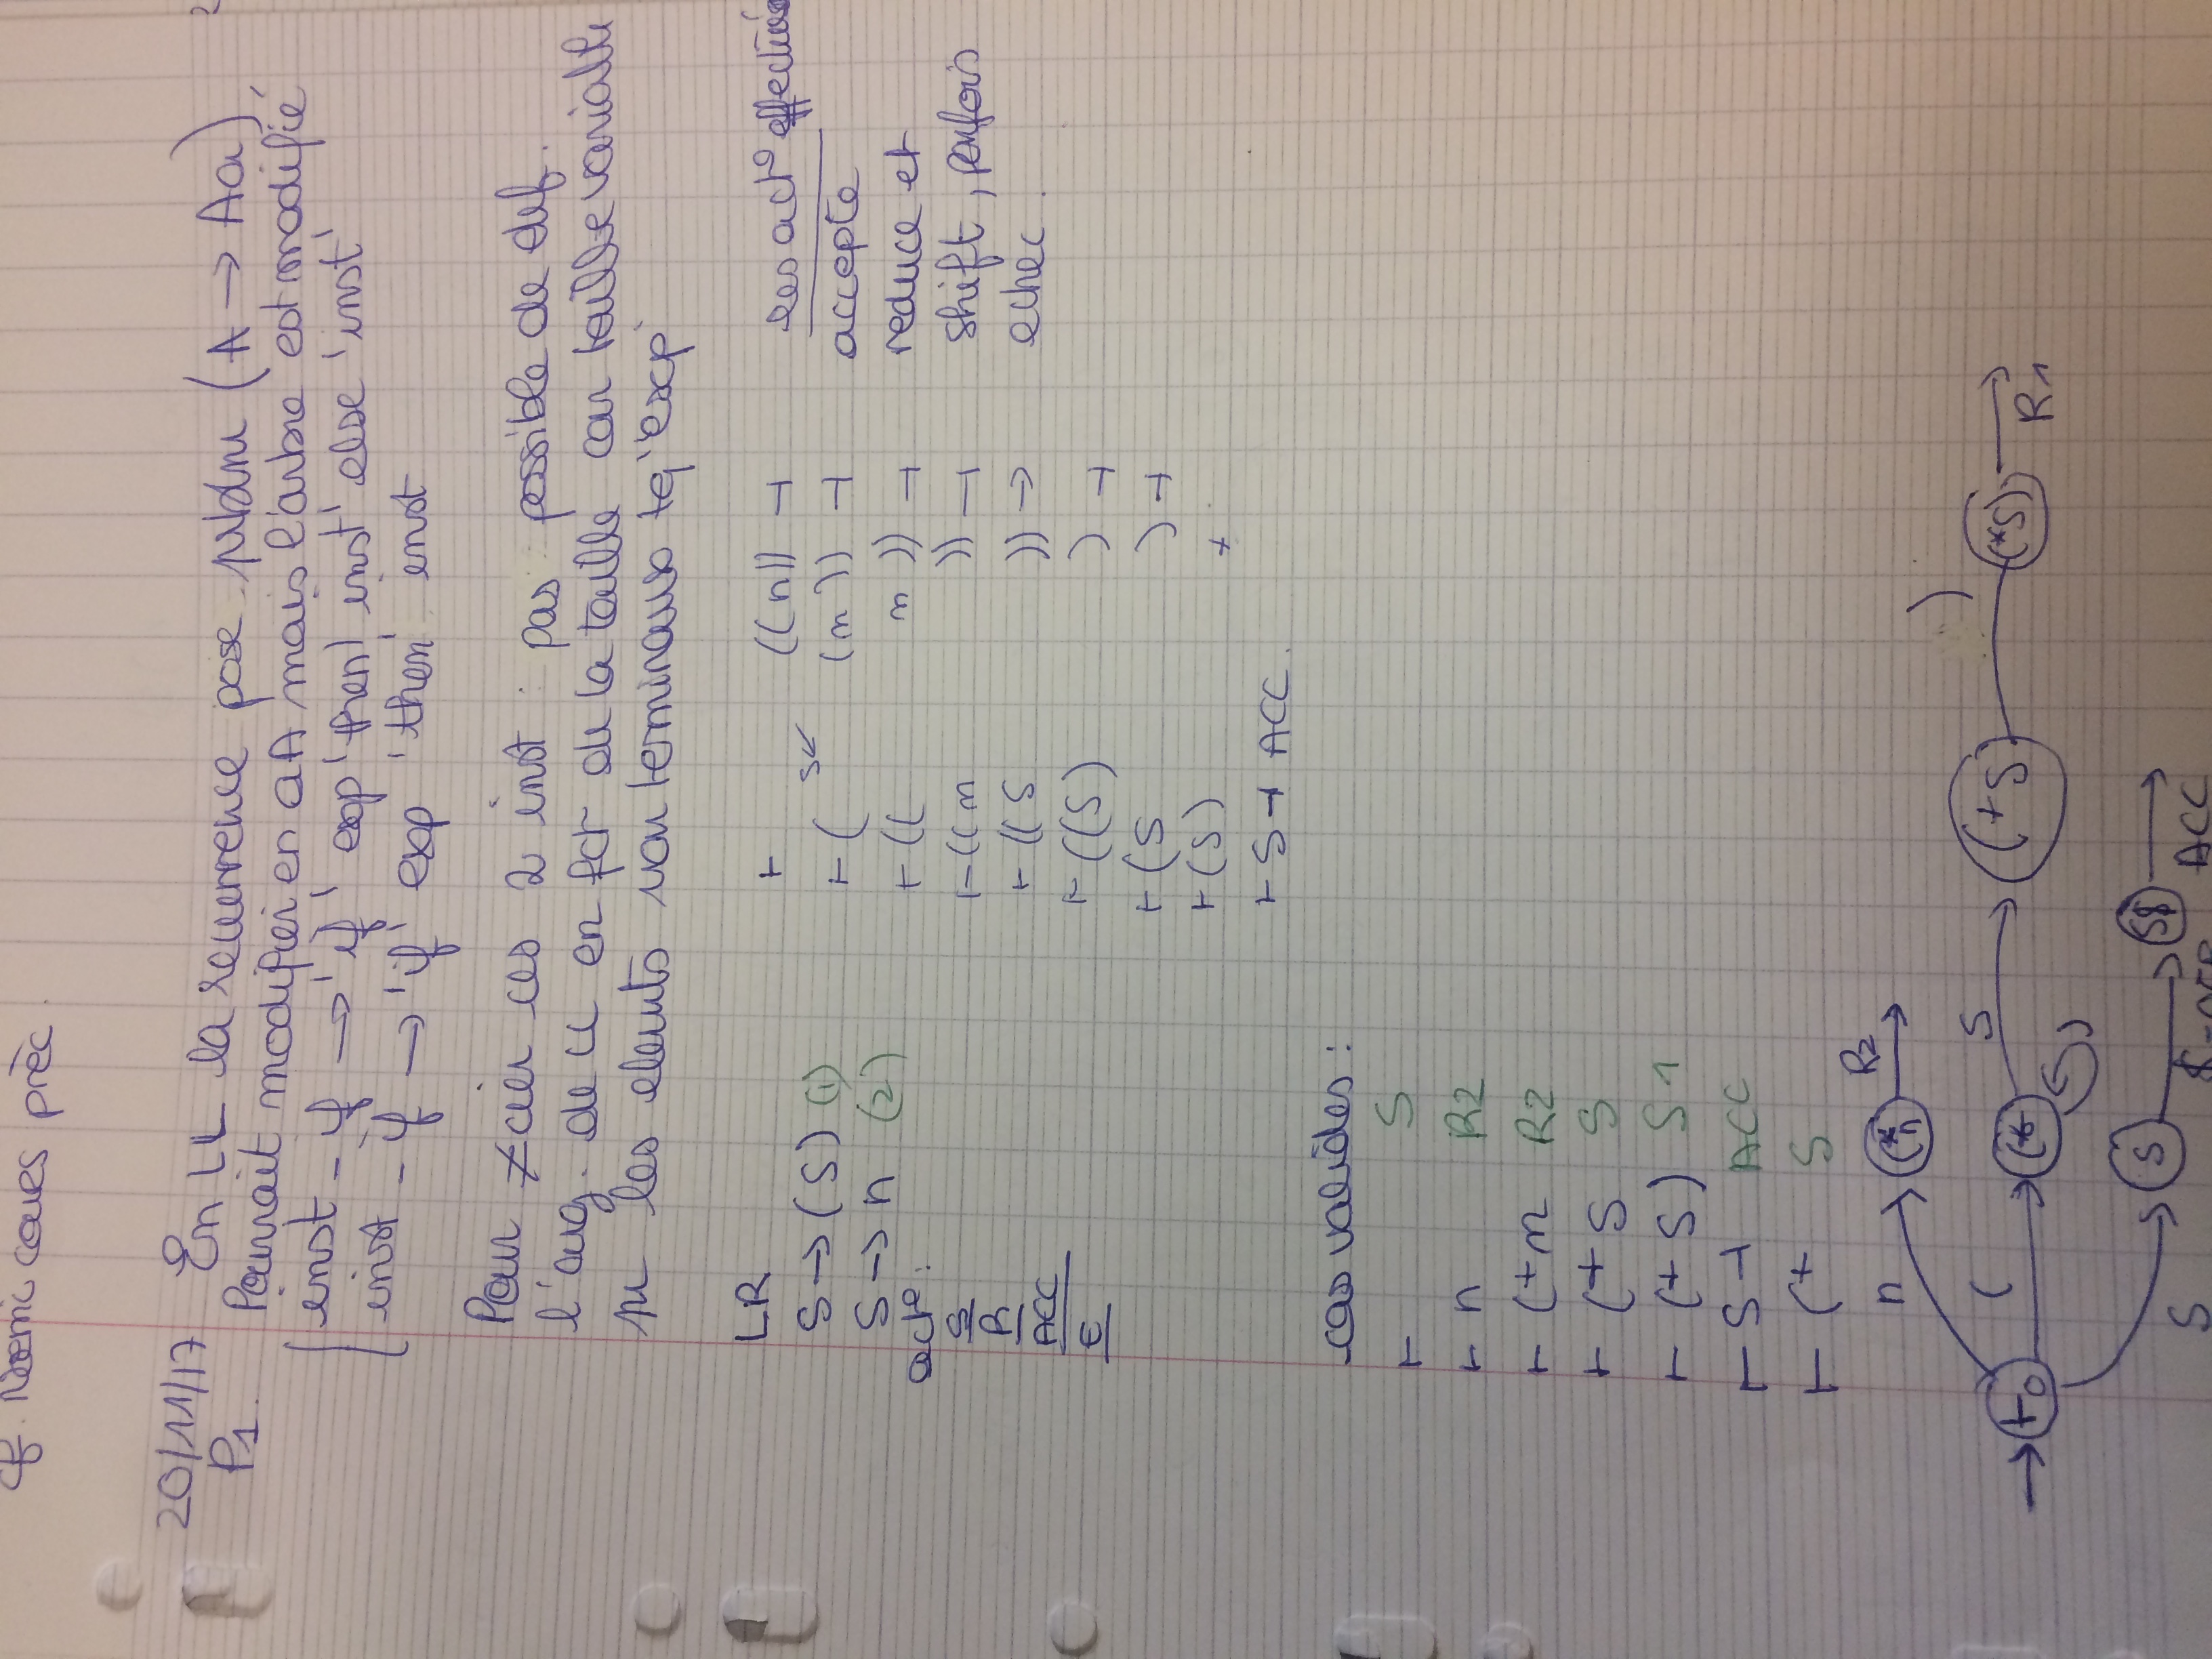 cf. Noemi cours prèc.
20/11/17 En LL la recurrence pose prblm (A → Aa)
P1. Pourrait modifier en aA mais l'arbre est modifié
inst - if → 'if' exp 'then' inst 'else' inst'
inst - if → 'if' exp 'then' inst
Pour ≠cier ces 2 inst : pas possible de def.
l'aug. de LL en fct de la taille car taille variable
pr les elemts non terminaux tq 'exp'
LR
S → (S) (1)
S → n (2)
act° :
S
R
ACC
E
⊢ ((n)) ⊣
⊢ ( S↙ (n)) ⊣
⊢ (( n )) ⊣
⊢ ((n )) ⊣
⊢ ((S )) →
⊢ ((S) ) ⊣
⊢ (S ) ⊣
⊢ (S) +
⊢ S ⊣ ACC.
les act° effectués
accepte
reduce et
shift, parfois
echec.
cas valides :
⊢ S
⊢ n R2
⊢ (+n R2
⊢ (+ S S
⊢ (+ S) S1
⊢ S ⊣ ACC
⊢ (+ S
n (*n R2
⊢0 ( (* S (+S ) (*S) R1
S S S$ ACC